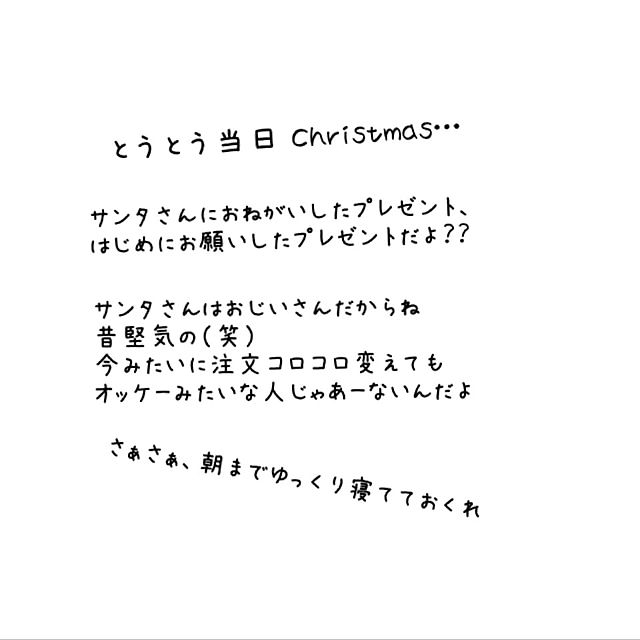 とうとう当日 Christmas…
サンタさんにおねがいしたプレゼント、
はじめにお願いしたプレゼントだよ??
サンタさんはおじいさんだからね
昔堅気の(笑)
今みたいに注文コロコロ変えても
オッケーみたいな人じゃあーないんだよ
さぁさぁ、朝までゆっくり寝てておくれ